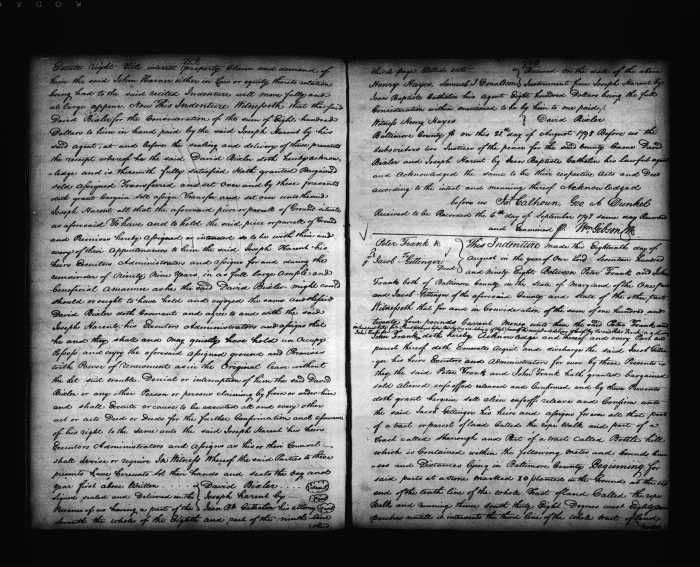 Estate right title interest property Claim and demand of
him the said John Warner either in Law or equity thereto relation
being had to the said recited Indenture will more fully and
at large appear. Now This Indenture Witnesseth that the said
David Bixler for the Consideration of the sum of Eight hundred
Dollars to him in hand paid by the said Joseph Harent by his
said agent at and before the sealing and delivery of these presents
the receipt whereof he the said David Bixler doth hereby acknow
ledge and is therewith fully satisfied Hath granted Bargained
sold assigned Transferred and set over and by these presents
doth grant bargain sell assign Transfer and set over unto the said
Joseph Harent all that the aforesaid piece or parcel of Ground situate
as aforesaid To have and to hold the said piece or parcel of Ground
and Premises hereby assigned or intended to be with their and
every of their Appurtenances to him the said Joseph Harent his
heirs Executors Administrators and assigns for and during the
remainder of Ninety Nine Years, in as full large ample and
beneficial manner as he the said David Bixler might could
should or ought to have held and enjoyed the same And the said
David Bixler doth Covenant and agree to and with the said
Joseph Harent, his Executors Administrators and assigns that
he and they shall and may quietly have hold use Occupy
Possess and enjoy the aforesaid assigned ground and Premises
with Power of renewment as in the Original Lease without
the let suit trouble Denial or interruption of him the said David
Bixler or any other Person or persons claiming by from or under him
and shall Execute or cause to be executed all and every other
act or acts Deed or Deeds for the further Confirmation and assurance
of his right to the same unto the said Joseph Harent his heirs
Executors Administrators and assigns as his or their Counsel
shall devise or require In Witness Whereof the said Parties to these
presents have hereunto set their hands and seals the day and
year first above Written David Bixler Seal
signed sealed and Delivered in the Joseph Harent by Seal
Presence of us having a part of the Jean Bte Cathalin his attorney
seventh the whole of the Eighth and part of the ninth line
third page blotted out Received on the date of the above
Henry Hayes, Samuel J Donaldson Instrument from Joseph Harent by
Jean Baptiste Cathalin his agent Eight hundred Dollars being the full
Consideration within mentioned to be by him to me paid,
Witness Henry Hayes David Bixler
Baltimore County ss on this 22d day of August 1798 Before us the
subscribers two Justices of the peace for the said County Came David
Bixler and Joseph Harent by Jean Baptiste Cathalin his lawful agent
and Acknowledged the same to be their respective acts and Deed
according to the intent and meaning thereof Acknowledged
before us Jas Calhoun, Geo A Dunkel
Received to be Recorded the 6th day of September 1798 same day Recorded
and Examined Wm Gibson Clk
Peter Frank &c
To
Jacob Gittinger
Deed
This Indenture made this Eighteenth day of
August in the year of Our Lord Seventeen hundred
and ninety Eight Between Peter Frank and John
Frank both of Baltimore County in the State of Maryland of the One part
and Jacob Gittinger of the aforesaid County and State of the other part
Witnesseth that for and in Consideration of the sum of one hundred and
twenty four pounds Current Money unto them the said Peter Frank and
John Frank, doth hereby Acknowledge and thereof and every Part and
parcel thereof doth Exonerate Acquit and discharge the said Jacob Gittin
ger his heirs Executors and Administrators for ever by these Presents
they the said Peter Frank and John Frank hath granted bargained
sold aliened enfeoffed released and Confirmed and by these Presents
doth grant bargain sell alien enfeoff release and Confirm unto
the said Jacob Gittinger his heirs and assigns for ever all that part
of a tract or parcel of land Called the rope Walk and part of a
tract called and Part of a tract called Bottle hill
which is Contained within the following metes and bounds cour
ses and Distances lying in Baltimore County Beginning for
said parts at a stone marked planted in the Grounds at the
end of the tenth line of the whole tract of land Called the rope
Walk and running thence south thirty Eight Degrees west Eighty
perches until it intersects the third line of the whole tract of land